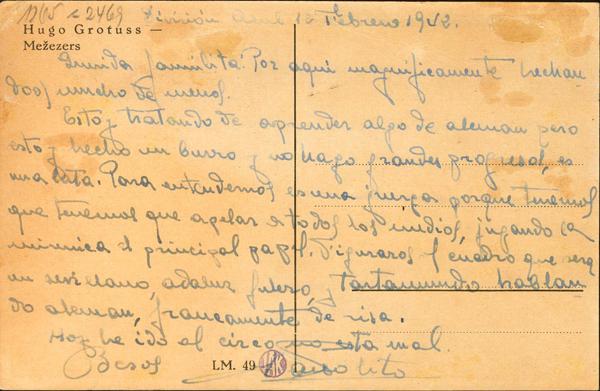 1765 c 2469
Hugo Grotuss —
Mežezers
División Azul 12 Febrero 1942.
Querida familita: Por aqui magnificamente hechan
doos mucho de menos.
Estoy tratando de aprender algo de aleman pero
estoy hecho un burro y no hago grandes progresos, es
una lata. Para entendernos es una juerga porque tenemos
que tenemos que apelar a todos los medios, jugando la
mimica el principal papel. Figuraros el cuadro que será
un sevillano, andaluz y tartamundo hablan
do aleman, francamente de risa.
Hoy he ido al circo no esta mal.
Besos
LM. 49